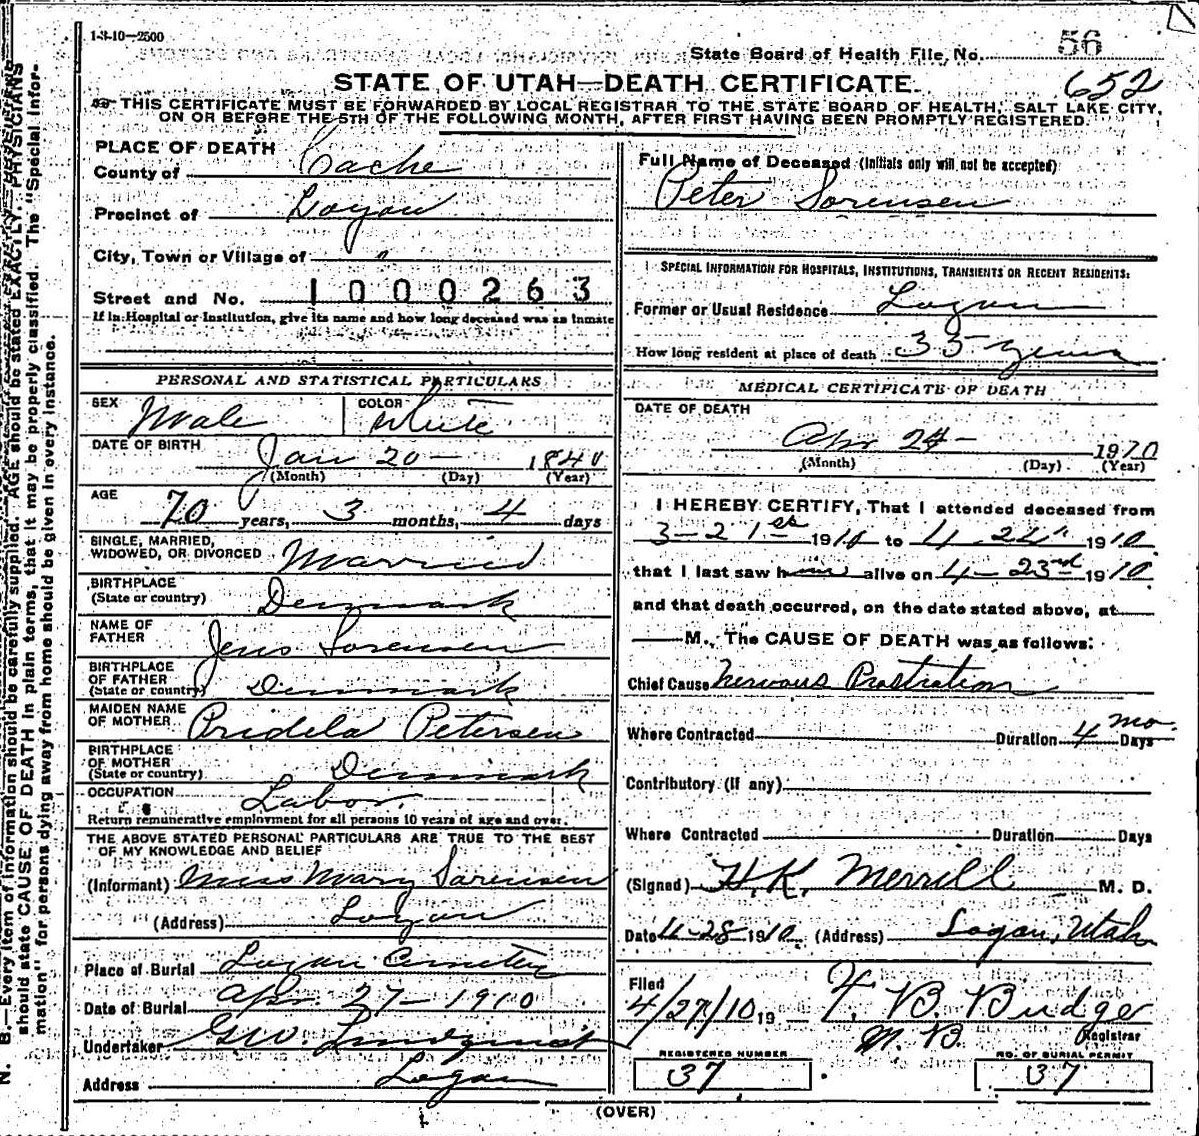 1-3-10—2500
State Board of Health File No. 56
652
STATE OF UTAH—DEATH CERTIFICATE.
THIS CERTIFICATE MUST BE FORWARDED BY LOCAL REGISTRAR TO THE STATE BOARD OF HEALTH, SALT LAKE CITY,
ON OR BEFORE THE 5TH OF THE FOLLOWING MONTH, AFTER FIRST HAVING BEEN PROMPTLY REGISTERED.
PLACE OF DEATH
County of Cache
Precinct of Logan
City, Town or Village of "
Street and No. 1000263
If in Hospital or Institution, give its name and how long deceased was an inmate
PERSONAL AND STATISTICAL PARTICULARS
SEX Male COLOR White
DATE OF BIRTH Jan 20 — 1840
(Month) (Day) (Year)
AGE
70 years, 3 months, 4 days
SINGLE, MARRIED,
WIDOWED, OR DIVORCED Married
BIRTHPLACE
(State or country) Denmark
NAME OF
FATHER Jens Sorensen
BIRTHPLACE
OF FATHER
(State or country) Denmark
MAIDEN NAME
OF MOTHER Petersen
BIRTHPLACE
OF MOTHER
(State or country) Denmark
OCCUPATION Labor.
Return remunerative employment for all persons 10 years of age and over.
THE ABOVE STATED PERSONAL PARTICULARS ARE TRUE TO THE BEST
OF MY KNOWLEDGE AND BELIEF
(Informant) Mary Sorensen
(Address) Logan
Place of Burial Logan Cemetery
Date of Burial Apr. 27 — 1910
Undertaker Geo. W. Lindquist
Address Logan
Full Name of Deceased (Initials only will not be accepted)
Peter Sorensen
SPECIAL INFORMATION FOR HOSPITALS, INSTITUTIONS, TRANSIENTS OR RECENT RESIDENTS:
Former or Usual Residence Logan
How long resident at place of death 35 years
MEDICAL CERTIFICATE OF DEATH
DATE OF DEATH
Apr 24 — 1910
(Month) (Day) (Year)
I HEREBY CERTIFY, That I attended deceased from
3 — 21st 1910 to 4 24" 1910
that I last saw him alive on 4 — 23rd 1910
and that death occurred, on the date stated above, at
M. The CAUSE OF DEATH was as follows:
Chief Cause Nervous Prostration
Where Contracted Duration 4 mo. Days
Contributory (if any)
Where Contracted Duration Days
(Signed) H. K. Merrill M. D.
Date 4-28-1910 (Address) Logan, Utah
Filed
4/27/10 19 — B. Budge
Registrar
REGISTERED NUMBER
37
NO. OF BURIAL PERMIT
37
(OVER)
N. B.—Every item of information should be carefully supplied. AGE should be stated EXACTLY. PHYSICIANS
should state CAUSE OF DEATH in plain terms, that it may be properly classified. The "Special Infor-
mation" for persons dying away from home should be given in every instance.